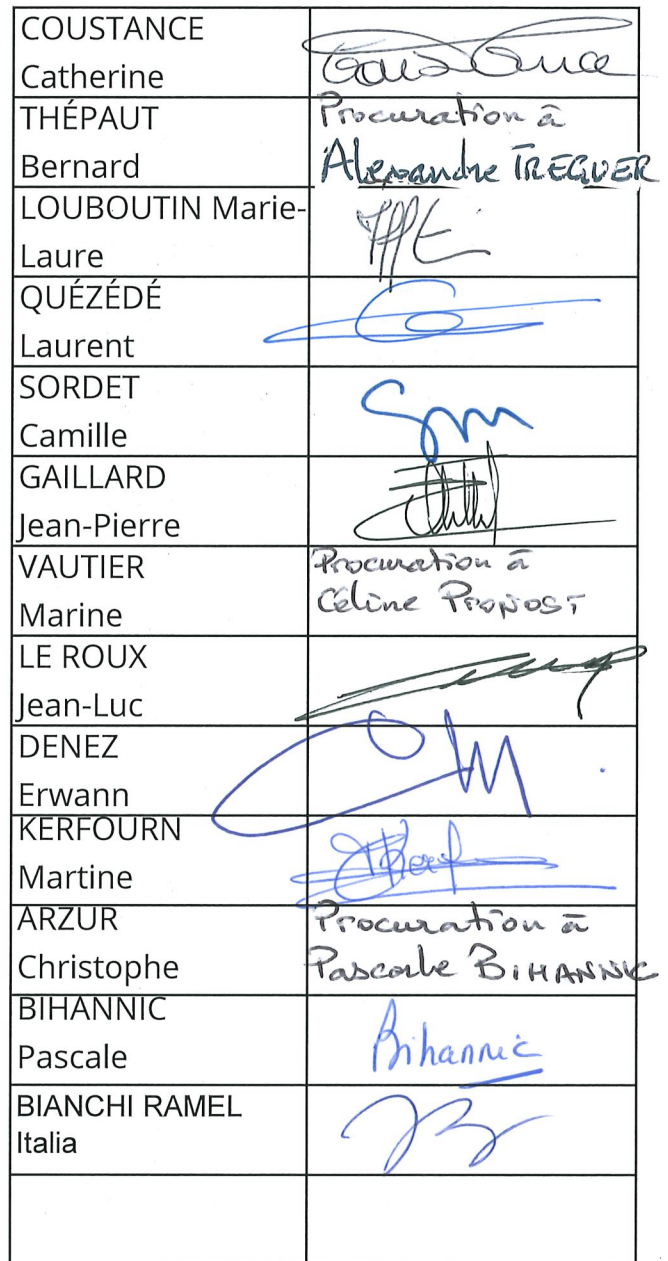 COUSTANCE
Catherine
THÉPAUT
Bernard
Procuration à
Alexandre TREGUER
LOUBOUTIN Marie-
Laure
QUÉZÉDÉ
Laurent
SORDET
Camille
GAILLARD
Jean-Pierre
VAUTIER
Marine
Procuration à
Céline PRONOST
LE ROUX
Jean-Luc
DENEZ
Erwann
KERFOURN
Martine
ARZUR
Christophe
Procuration à
Pascale BIHANNIC
BIHANNIC
Pascale
Bihannic
BIANCHI RAMEL
Italia